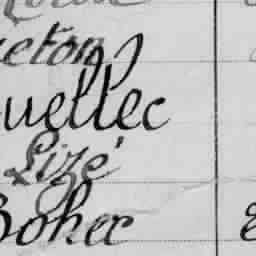 eton
uellec
Lizé
Bohec